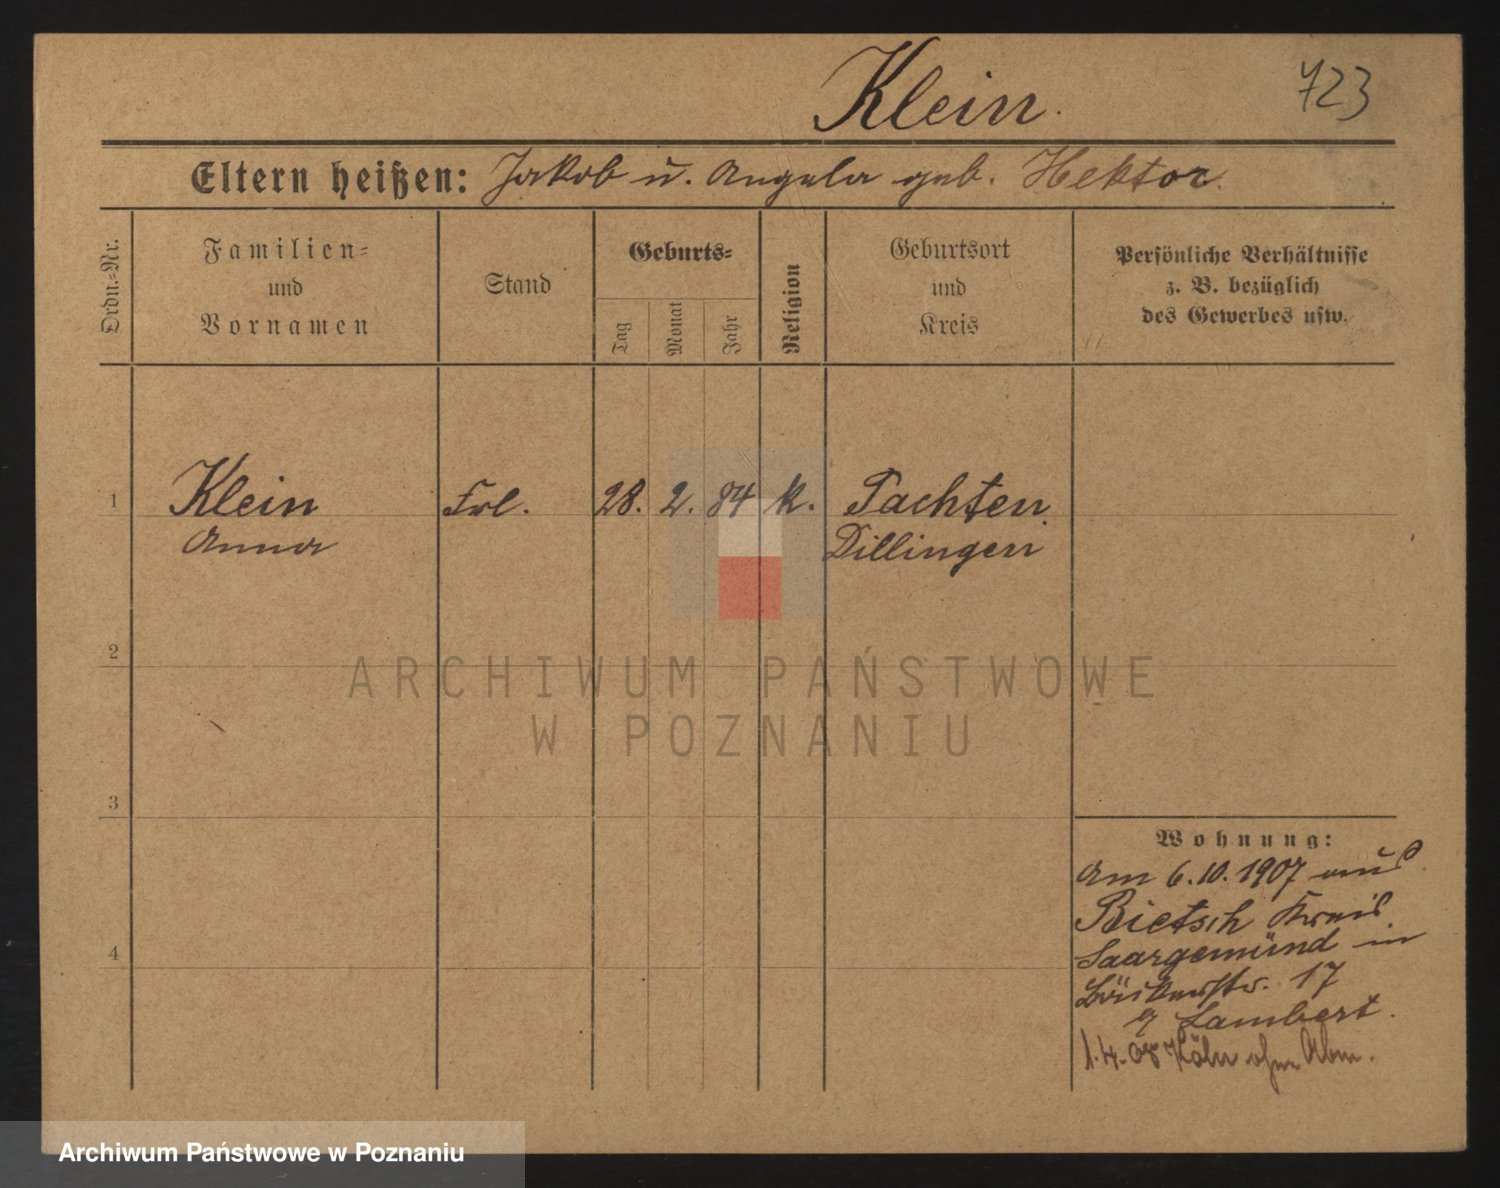 Klein.
723
Eltern heißen: Jakob u. Angela geb. Hektor.
Ordn.-Nr.
Familien-
und
Vornamen
Stand
Geburts-
Tag
Monat
Jahr
Religion
Geburtsort
und
Kreis
Persönliche Verhältnisse
z. B. bezüglich
des Gewerbes usw.
1
Klein
Anna
Frl.
28. 2. 84
k.
Pachten
Dillingen
2
3
4
Wohnung:
Am 6.10.1907 aus
Bietsch Kreis
Saargemünd in
17
Lambert.
1.4.08 Köln ohne Abm.
ARCHIWUM PAŃSTWOWE
W POZNANIU
Archiwum Państwowe w Poznaniu